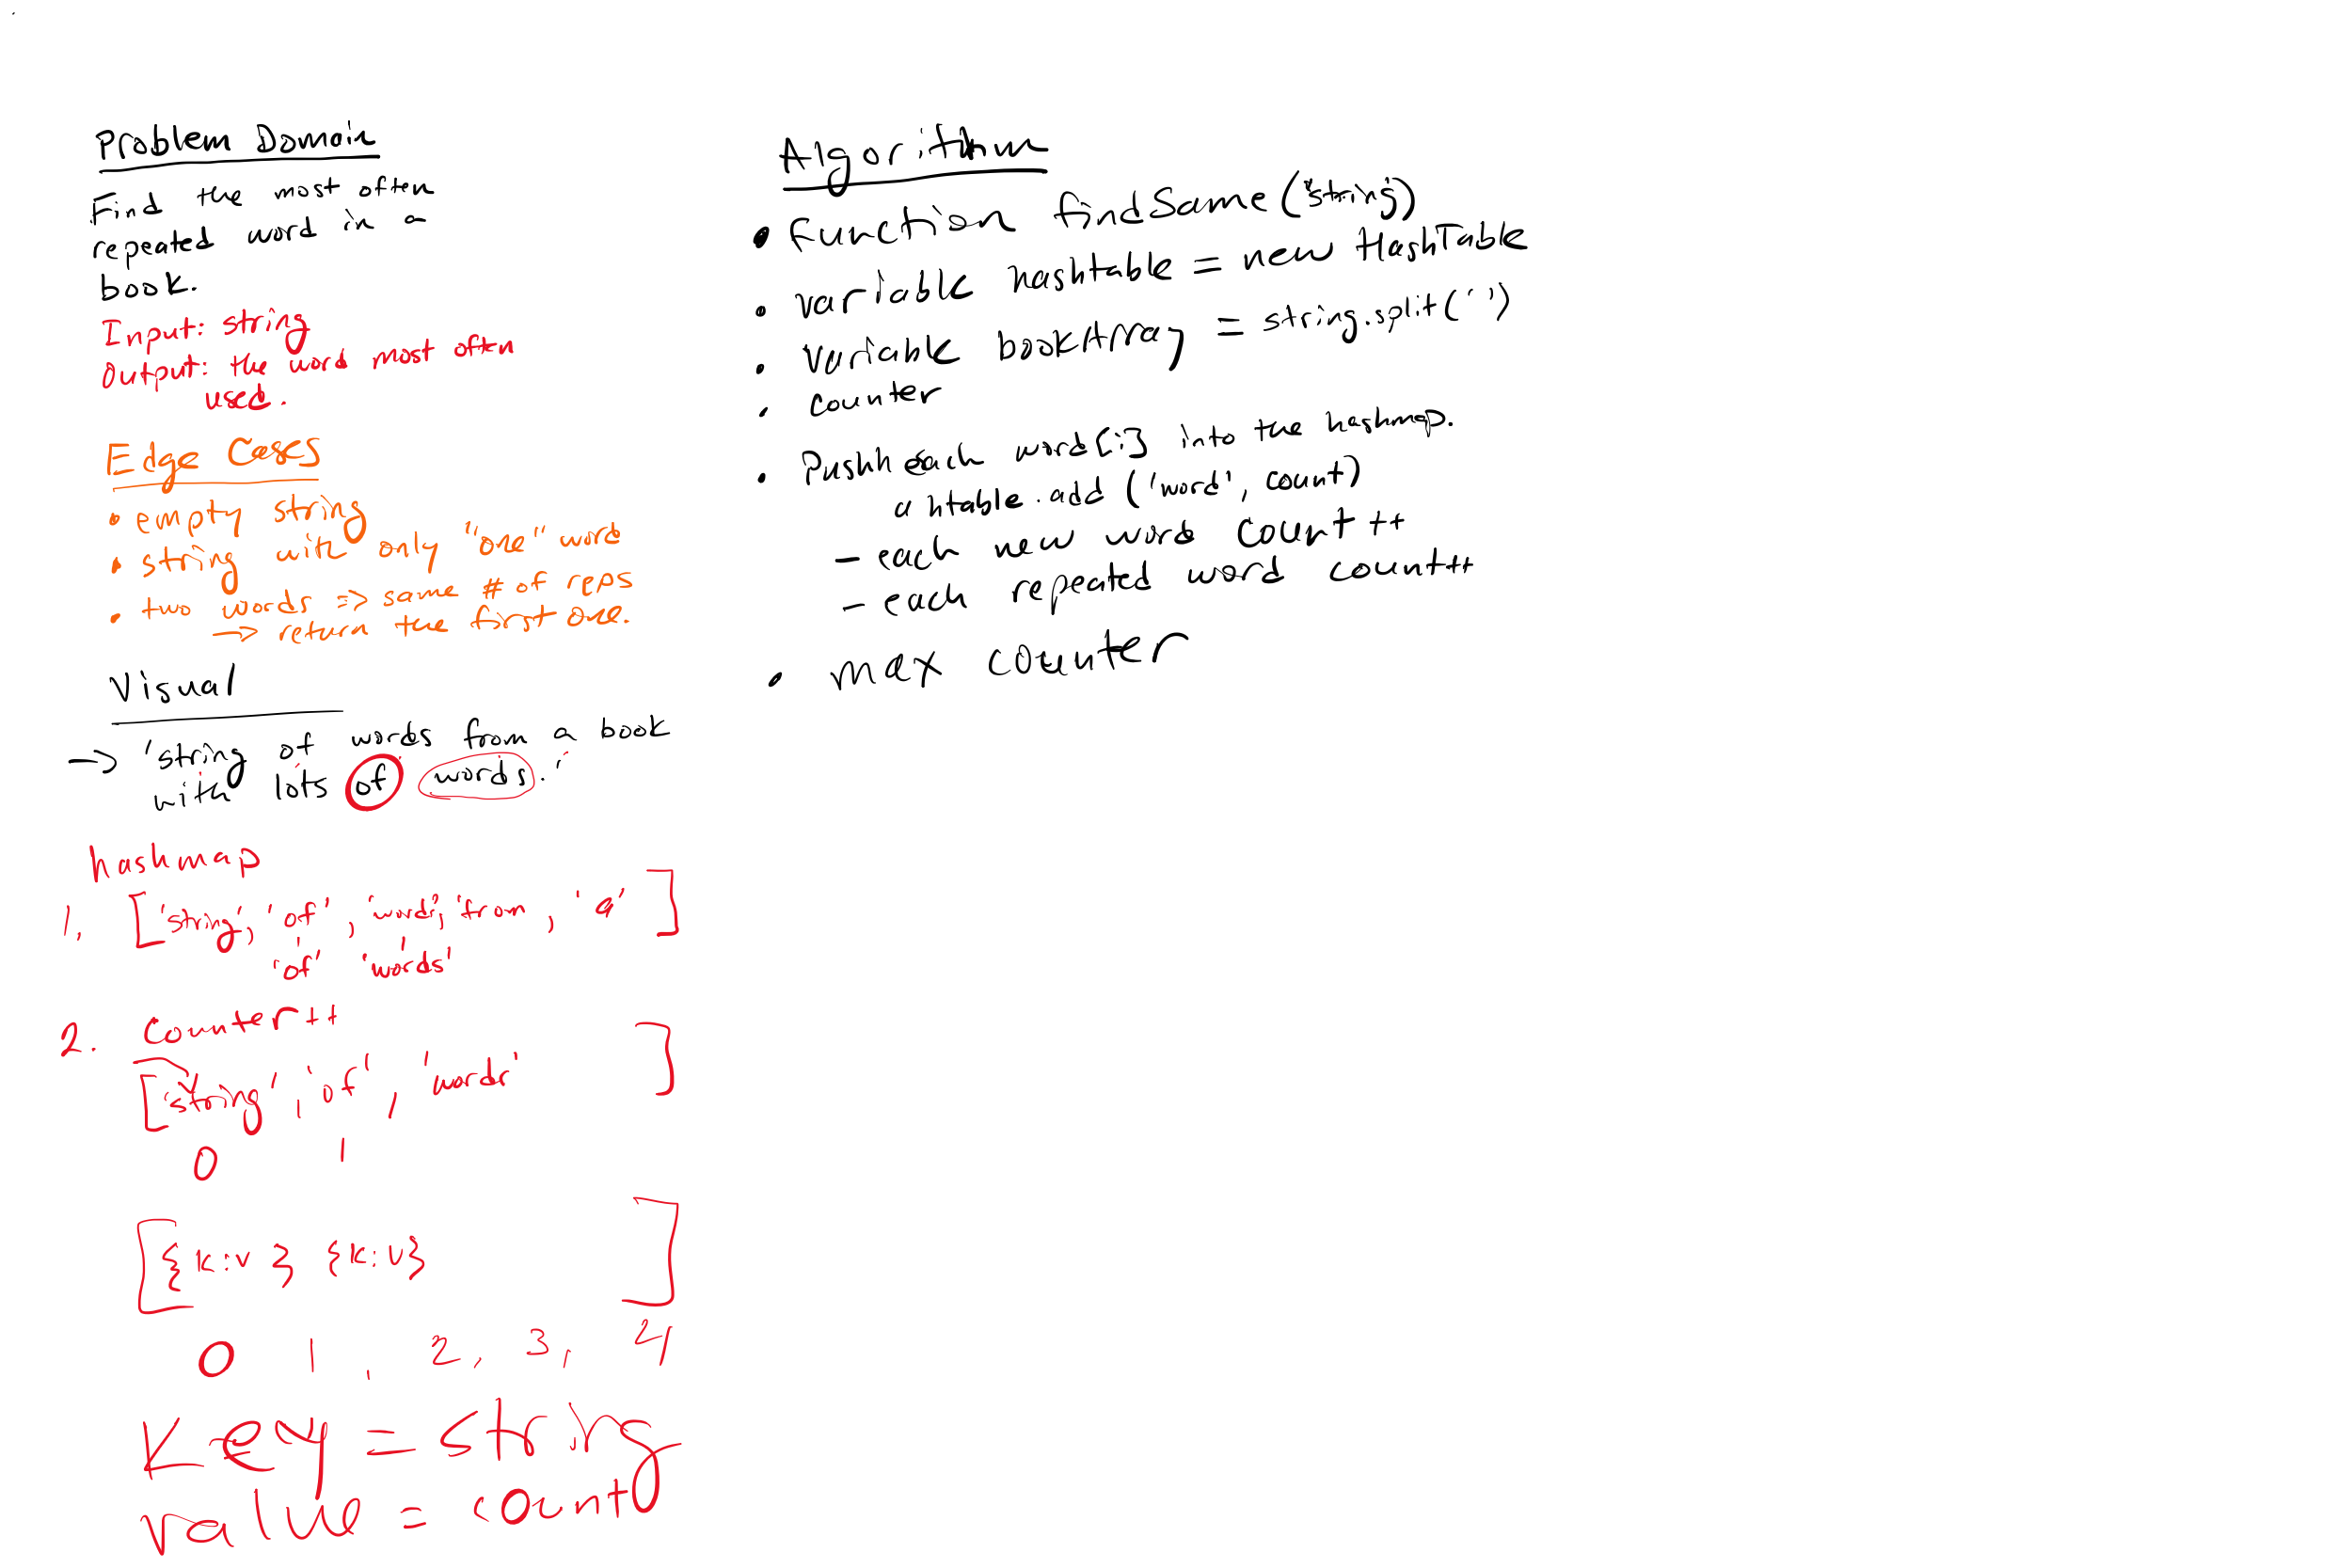 Problem Domain
Find the most often
repeated word in a
book.
Input: string
Output: the word most often
used.
Edge Cases
• empty string
• string with only "one" word
• two words => same # of reps
-> return the first one.
Visual
-> 'string of words from a book
with lots of words.'
hashmap
1. ['string', 'of', 'words', 'from, 'a' ]
'of' 'words'
2. Counter++
['string', 'of', 'words' ]
0 1
[{k:v} {k:v} ]
0 1, 2, 3, 4
Key = string
value = count
Algorithm
• function findSame('string')
• variable hashtable = new HashTable
• variable bookArray = string.split(' ')
• counter
• Pushh each word[i] into the hashmap.
a htable.add ('word', count)
- each new word count++
- each repeated word count++
• max counter